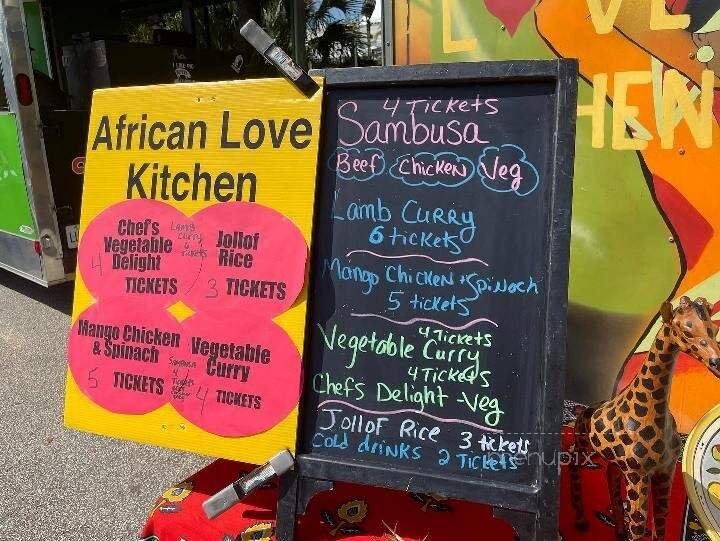 African Love
Kitchen
Chef's
Vegetable
Delight
4 TICKETS
Lamb
Curry
6
Tickets
Jollof
Rice
3 TICKETS
Mango Chicken
& Spinach
5 TICKETS
Sambusa
4
Tickets
Vegetable
Curry
4 TICKETS
4 Tickets
Sambusa
Beef Chicken Veg
Lamb Curry
6 tickets
Mango Chicken + Spinach
5 tickets
4 Tickets
Vegetable Curry
4 Tickets
Chefs Delight -Veg
Jollof Rice 3 tickets
Cold drinks 2 Tickets
LOVE
HEN
menupix